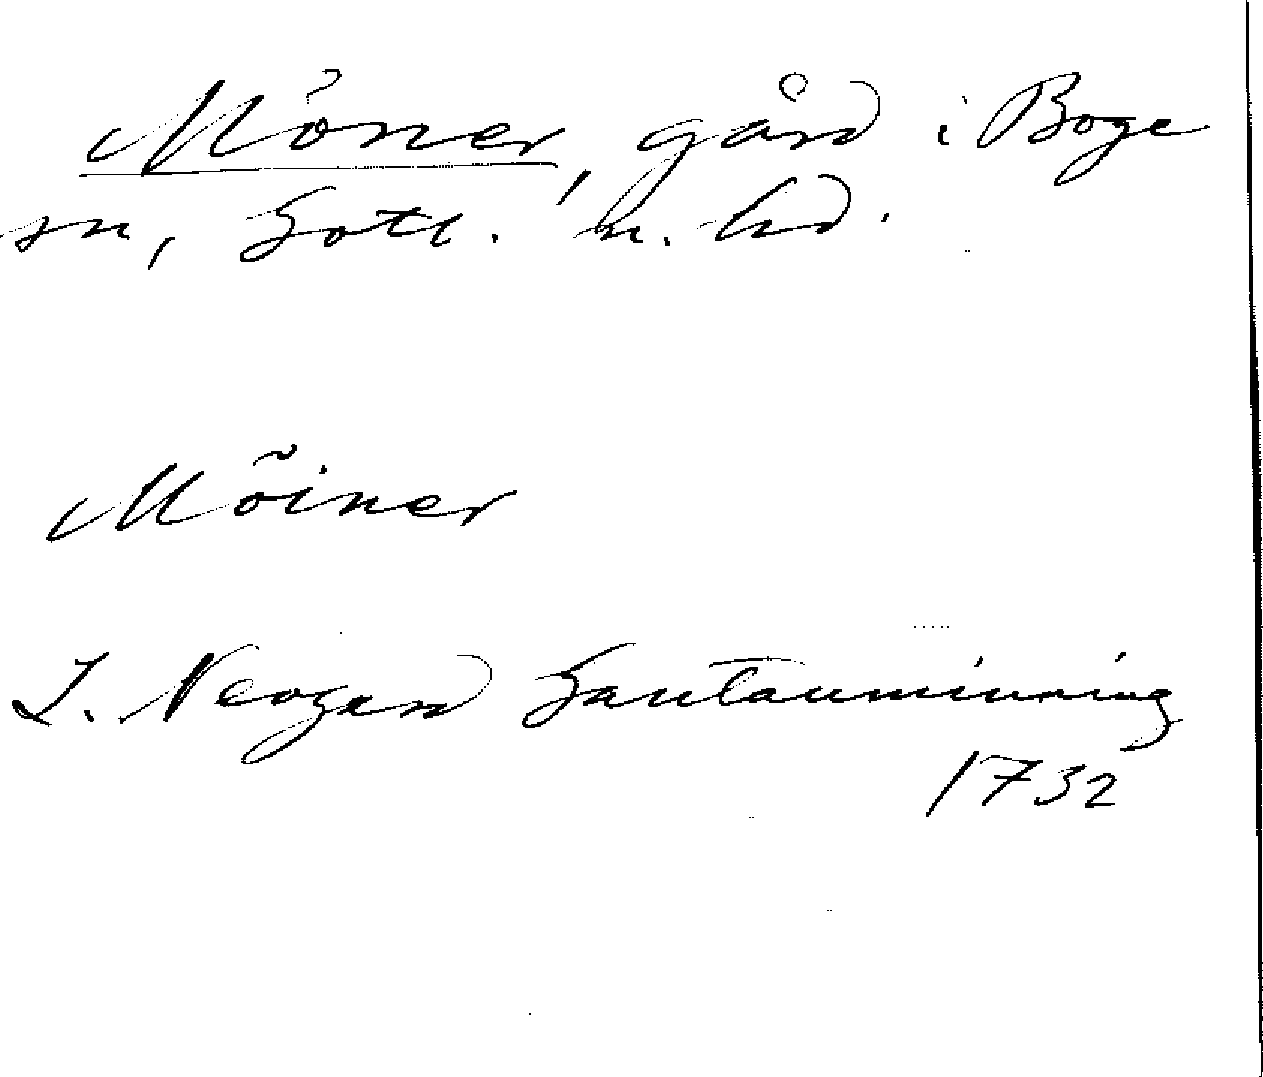 Möner, gård i Boge
sn, Gotl. n. hd.
Möiner
J. Neogard Gautauminning
1732